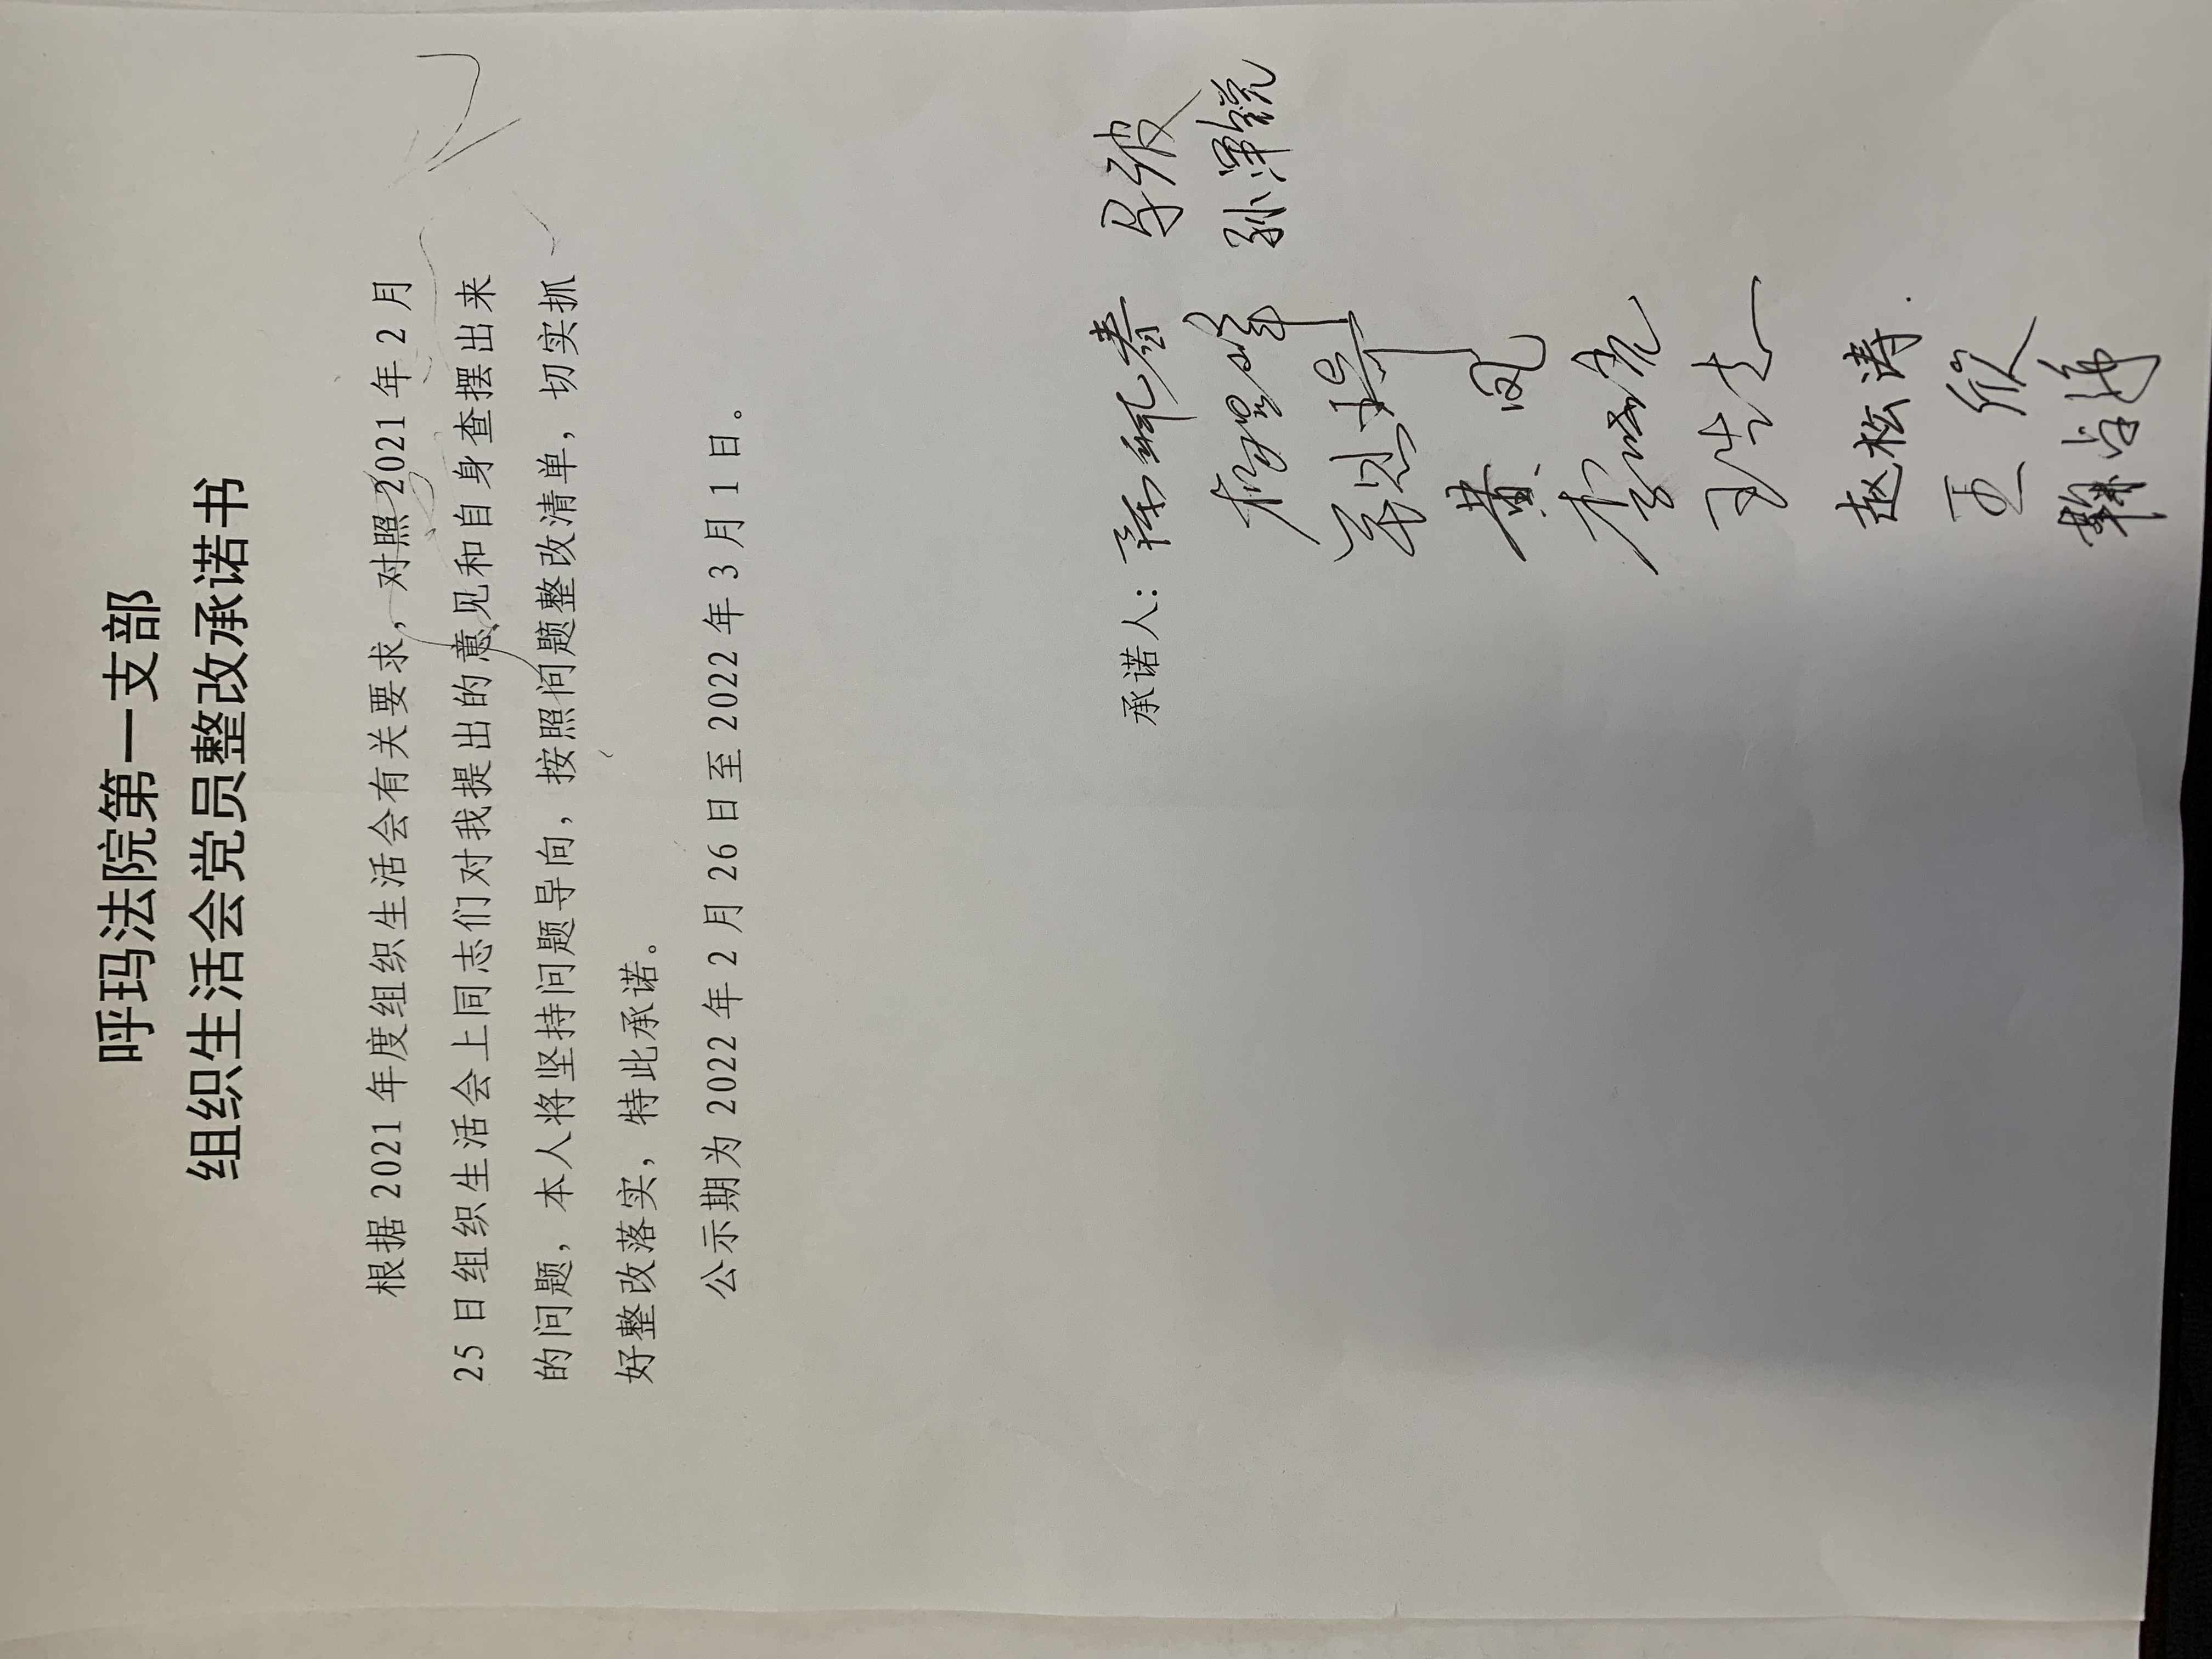 呼玛法院第一支部
组织生活会党员整改承诺书
根据 2021 年度组织生活会有关要求，对照 2021 年 2 月
25 日组织生活会上同志们对我提出的意见和自身查摆出来
的问题，本人将坚持问题导向，按照问题整改清单，切实抓
好整改落实，特此承诺。
公示期为 2022 年 2 月 26 日至 2022 年 3 月 1 日。
承诺人：
黄凤
赵松涛
王欣